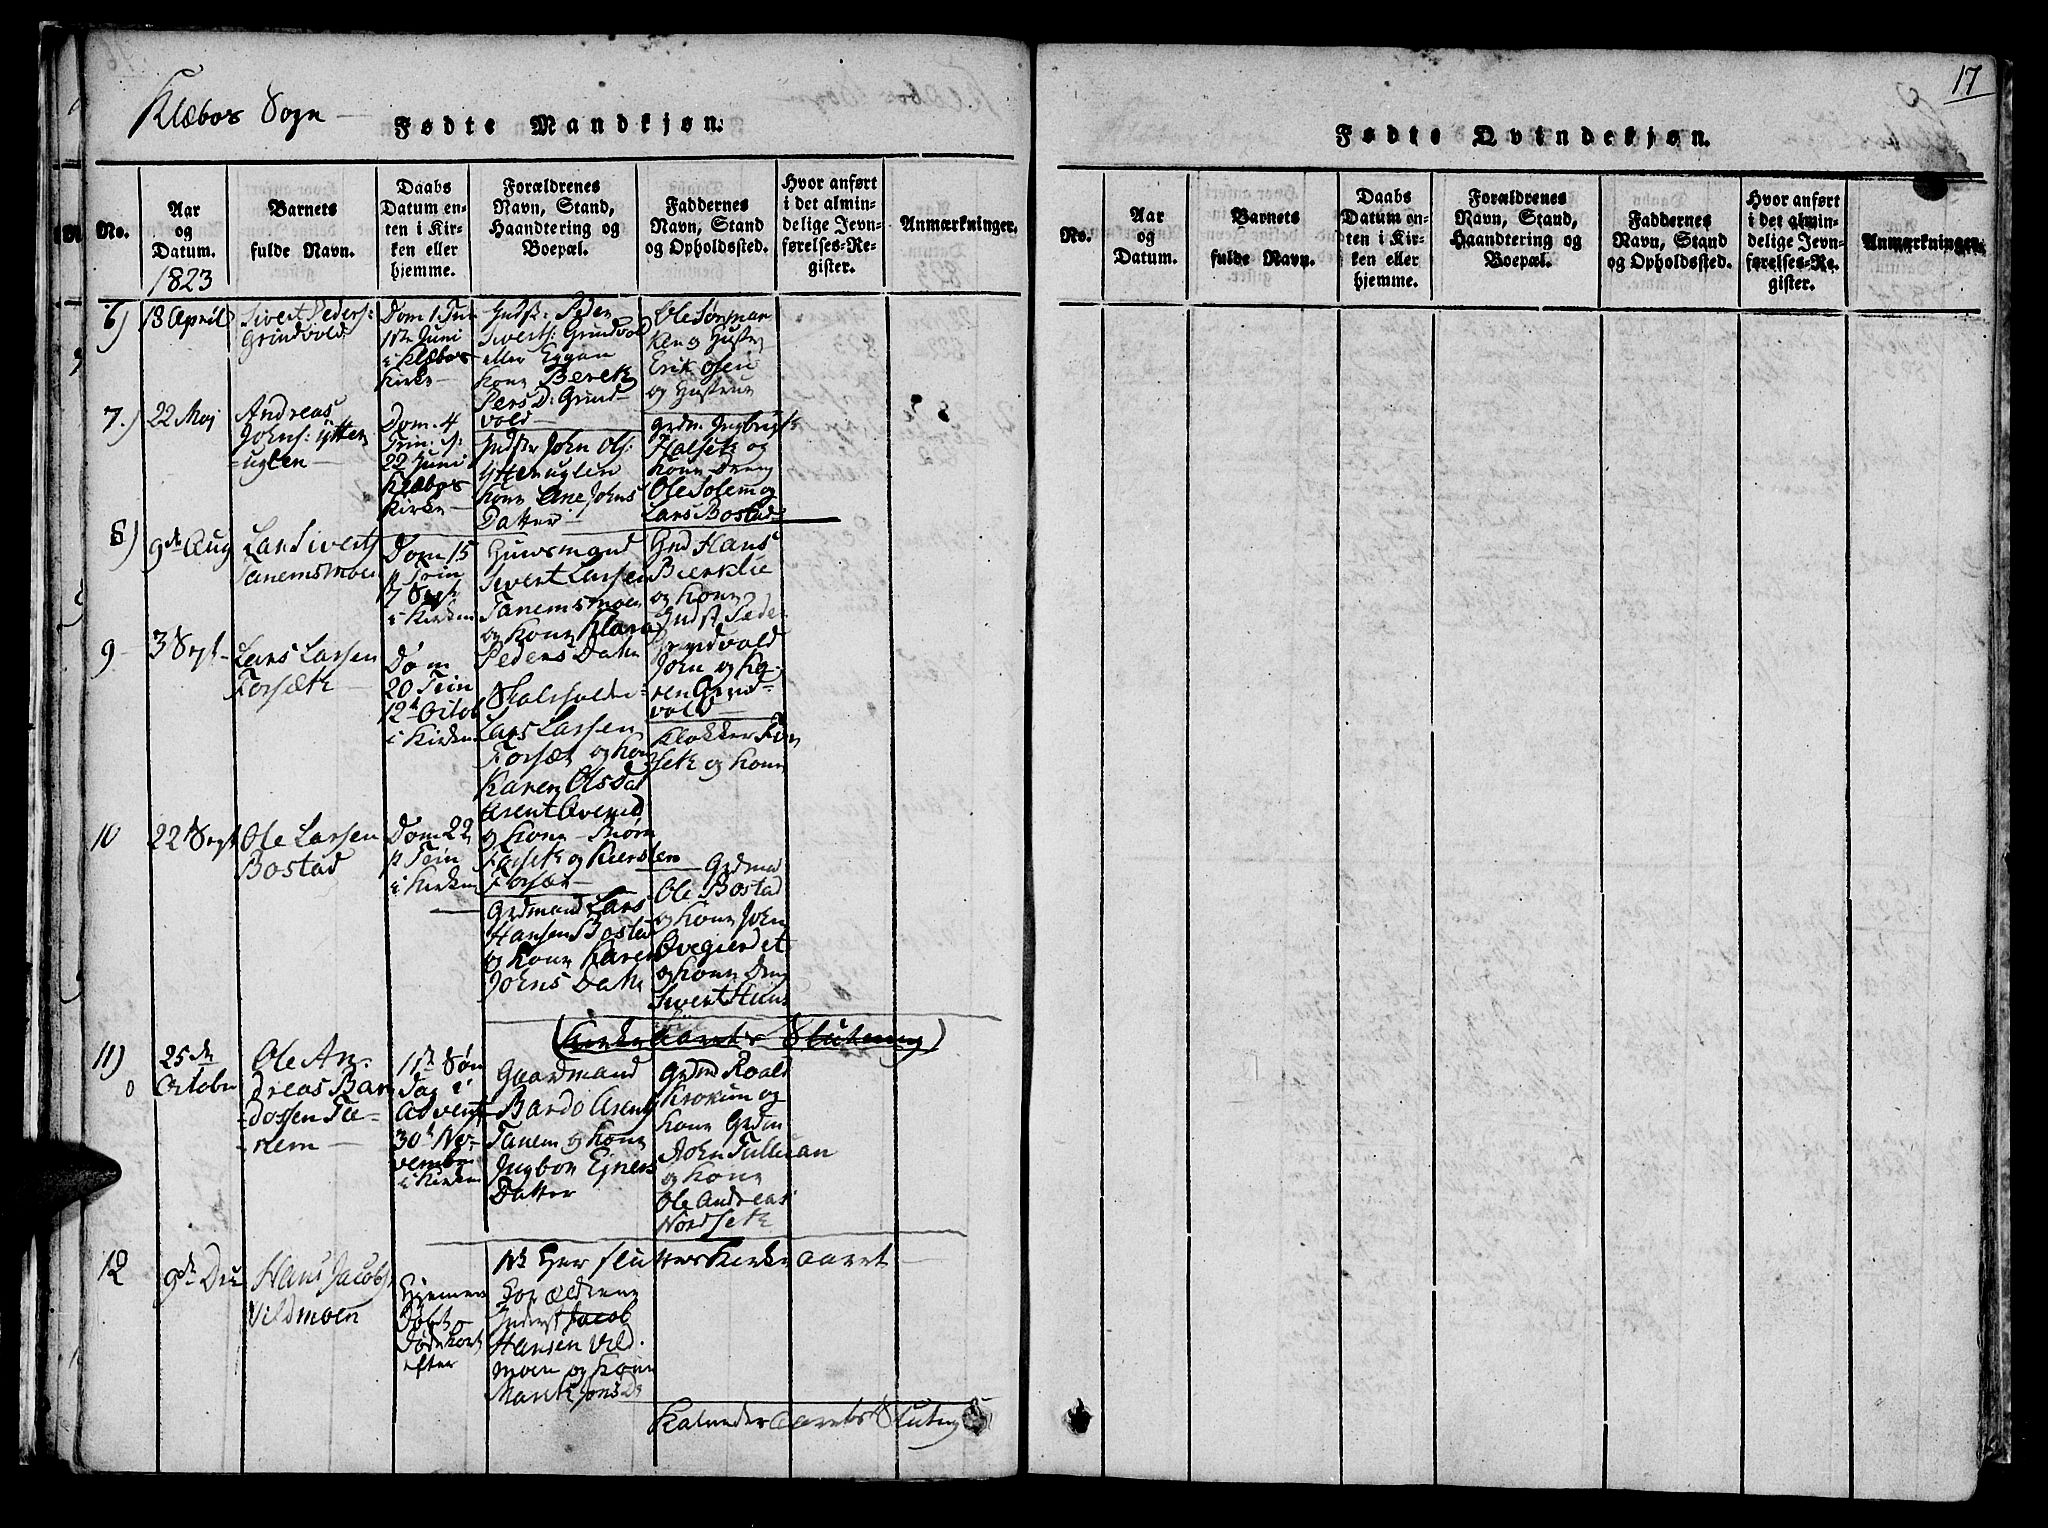 Klæboe Sogn
Fødte Mandkjøn.
No.
Aar
og
Datum.
1823
Barnets
fulde Navn.
Daabs
Datum en-
ten i Kir-
ken eller
hjemme.
Forældrenes
Navn, Stand,
Haandtering og
Boepæl.
Faddernes
Navn, Stand
og Opholdssted.
Hvor anført
i det almin-
delige Jevn-
førelses-Re-
gister.
Anmærkninger.
6)
18 April
Sivert Peders:
Grindvold
Dom 1 Tri
1ste Juni
i Klæboe
Kirke
Indst: Peder
Siverts: Grindvold
eller Eggan
Kone Bereth
Pers D: Grind-
vold
Ole Sørman
Erik Osen
og Hustrue
7.)
22 Maj
Andreas
Johns: Ytter
=uglen
Dom. 4
Trin.
22 Juni
Klæboe
Kirke
Indster John Ols:
Ytteruglen
Kone Ane Johns
Datter
Grdm. Ingbrigt
Halseth og
Kone Dreng
Ole Solem og
Lars Bostad
8)
9de Aug
Lars Siverts
Tanemsmoen
Dom 15
p Trin
7 Sept
i Kirken
Huusmand
Sivert Larsen
Tanemsmoen
og Kone Klara
Peders Datr
Grd Hans
Bierklie
og Kone
Indst Peder
Grindvold
John og Ka-
ren Grind-
vold
9
3 Sept
Lars Larsen
Forsæth
Dom
20 Trin
12te Octob
i Kirken
Skoleholder
Lars Larsen
Forsæt og Kone
Karen Olsdat
Arent
og Kone
Forseth og Kiersten
Forsæt
Klokker For
seth og Kone
10
22 Sept
Ole Larsen
Bostad
Dom 22
p Trin
i Kirken
Grdmand Lars
Hansen Bostad
og Kone Karen
Johns Datr
Grdmd
Ole Bostad
og Kone John
Øvegierdet
og Kone Dreng
Sivert
(Kirkeaarets Slutning)
11)
25de
October
Ole An-
dreas Bar
dossen Ta-
nem
1ste Søn
dag i
Advent
30te No-
vember
i Kirken
Gaardmand
Bardo Arents
Tanem og Kone
Ingbor Ejners
Datter
Grdmd Roald
Krokum og
Kone Grdm
John Tulluan
og Kone
Ole Andreas
Nordseth
12
9de Dec
Hans Jacobs
Vildmoen
Hjemme
Døbt og
Døde kort
efter
NB Her slutter Kirkeaaret
Forældrene
Inderst Jacob
Hansen Vild-
moen og Kone
Mareth Jons D:
Kalenderaarets Slutning
17
Fødte Qvindekjøn.
No.
Aar
og
Datum.
Barnets
fulde Navn.
Daabs
Datum en-
ten i Kir-
ken eller
hjemme.
Forældrenes
Navn, Stand,
Haandtering og
Boepæl.
Faddernes
Navn, Stand
og Opholdssted.
Hvor anført
i det almin-
delige Jevn-
førelses-Re-
gister.
Anmærkninger.